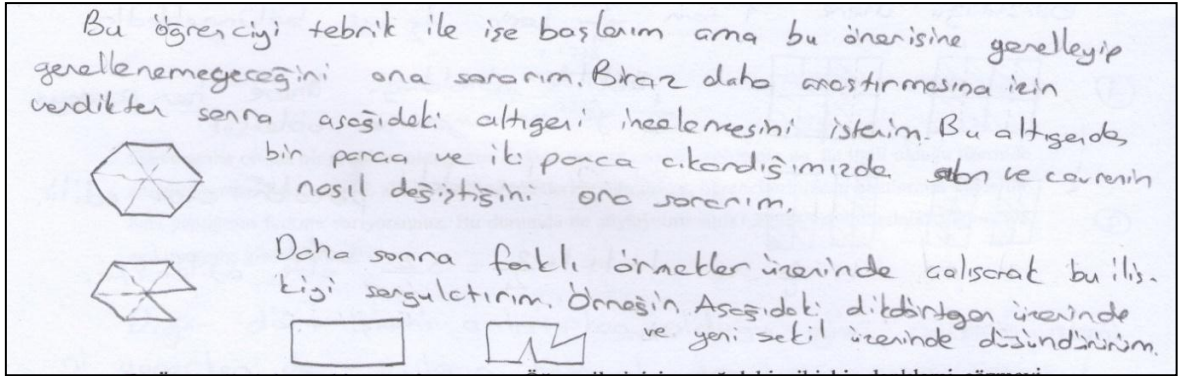 Bu öğrenciyi tebrik ile işe başlarım ama bu önerisine genelleyip
genellenemeyeceğini ona sorarım. Biraz daha araştırmasına izin
verdikten sonra aşağıdaki altıgeni incelemesini isterim. Bu altıgende
bir parça ve iki parça çıkardığımızda alan ve çevrenin
nasıl değiştiğini ona sorarım.
Daha sonra farklı örnekler üzerinde çalışarak bu iliş-
kiyi sorgulatırım. Örneğin Aşağıdaki dikdörtgen üzerinde
ve yeni şekil üzerinde düşündürürüm.